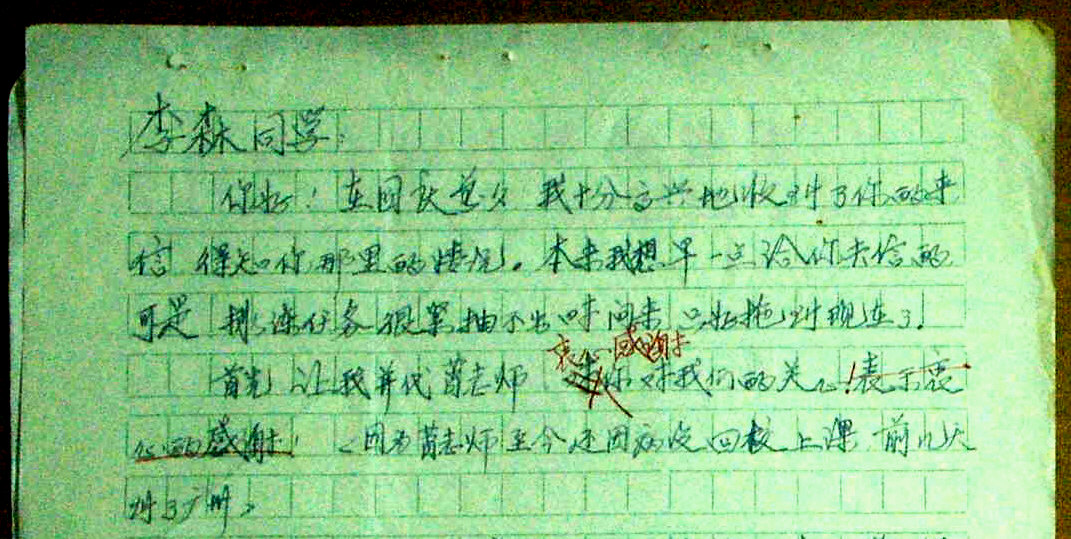 李森同学:
你好！在国庆前夕 我十分高兴地收到了你的来
信 得知你那里的情况。本来我想早一点给你去信的
可是 排练任务很紧抽不出时间来 只好拖到现在了！
衷心感谢
首先 让我并代 老师 你对我们的关心！表示衷
心的感谢！ 因为 老师至今还因病没回校上课 前几天
到了广州